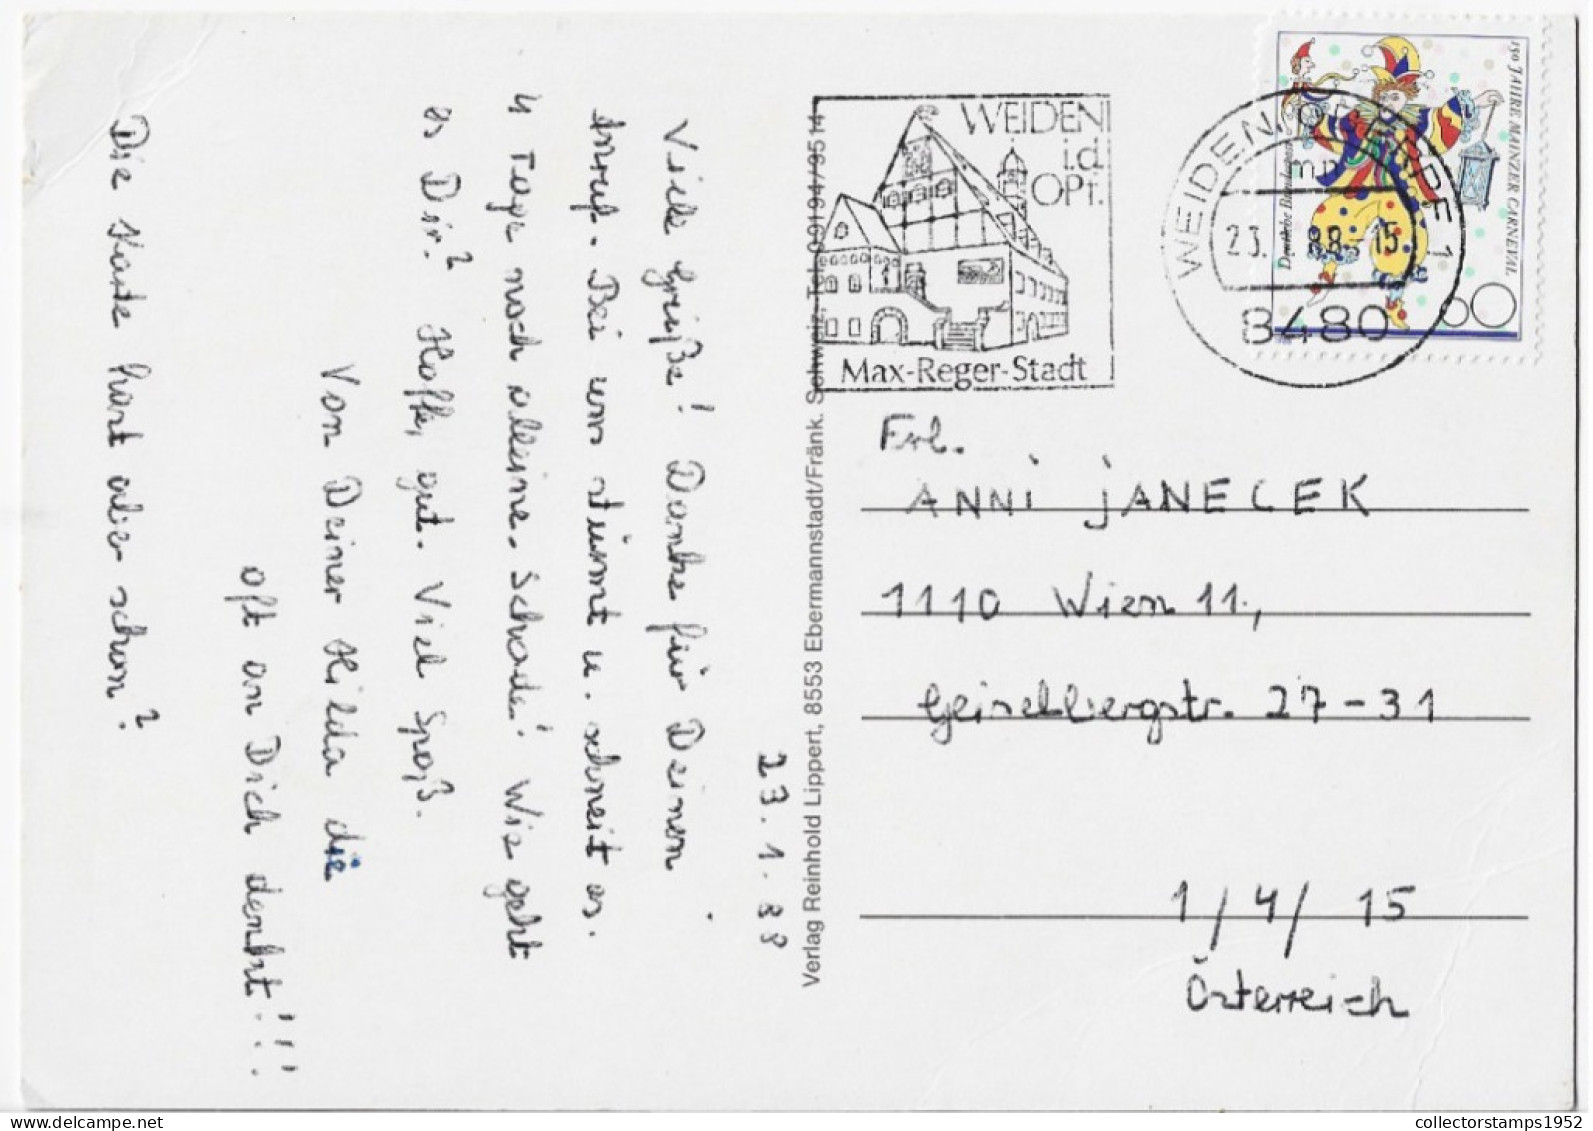 23. 1. 88
Viele Grüße! Danke für Deinen
Anruf. Bei uns stürmt u. schneit es.
4 Tage noch alleine. Schade! Wie geht
es Dir? Hoffe, gut. Viel Spaß.
Von Deiner Hilda die
oft an Dich denkt!!!
Die Karte hast aber schon?
Verlag Reinhold Lippert, 8553 Ebermannstadt/Fränk. Schweiz, Tel. 09194/9514
WEIDEN
i.d.
OPf.
Max-Reger-Stadt
WEIDEN, OPF 1
23. 88-15
8480
Deutsche Bundespost
150 JAHRE MAINZER CARNEVAL
60
Frl.
ANNI JANECEK
1110 Wien 11.,
Geiselbergstr. 27-31
1/4/15
Österreich
delcampe.net
collectorstamps1952